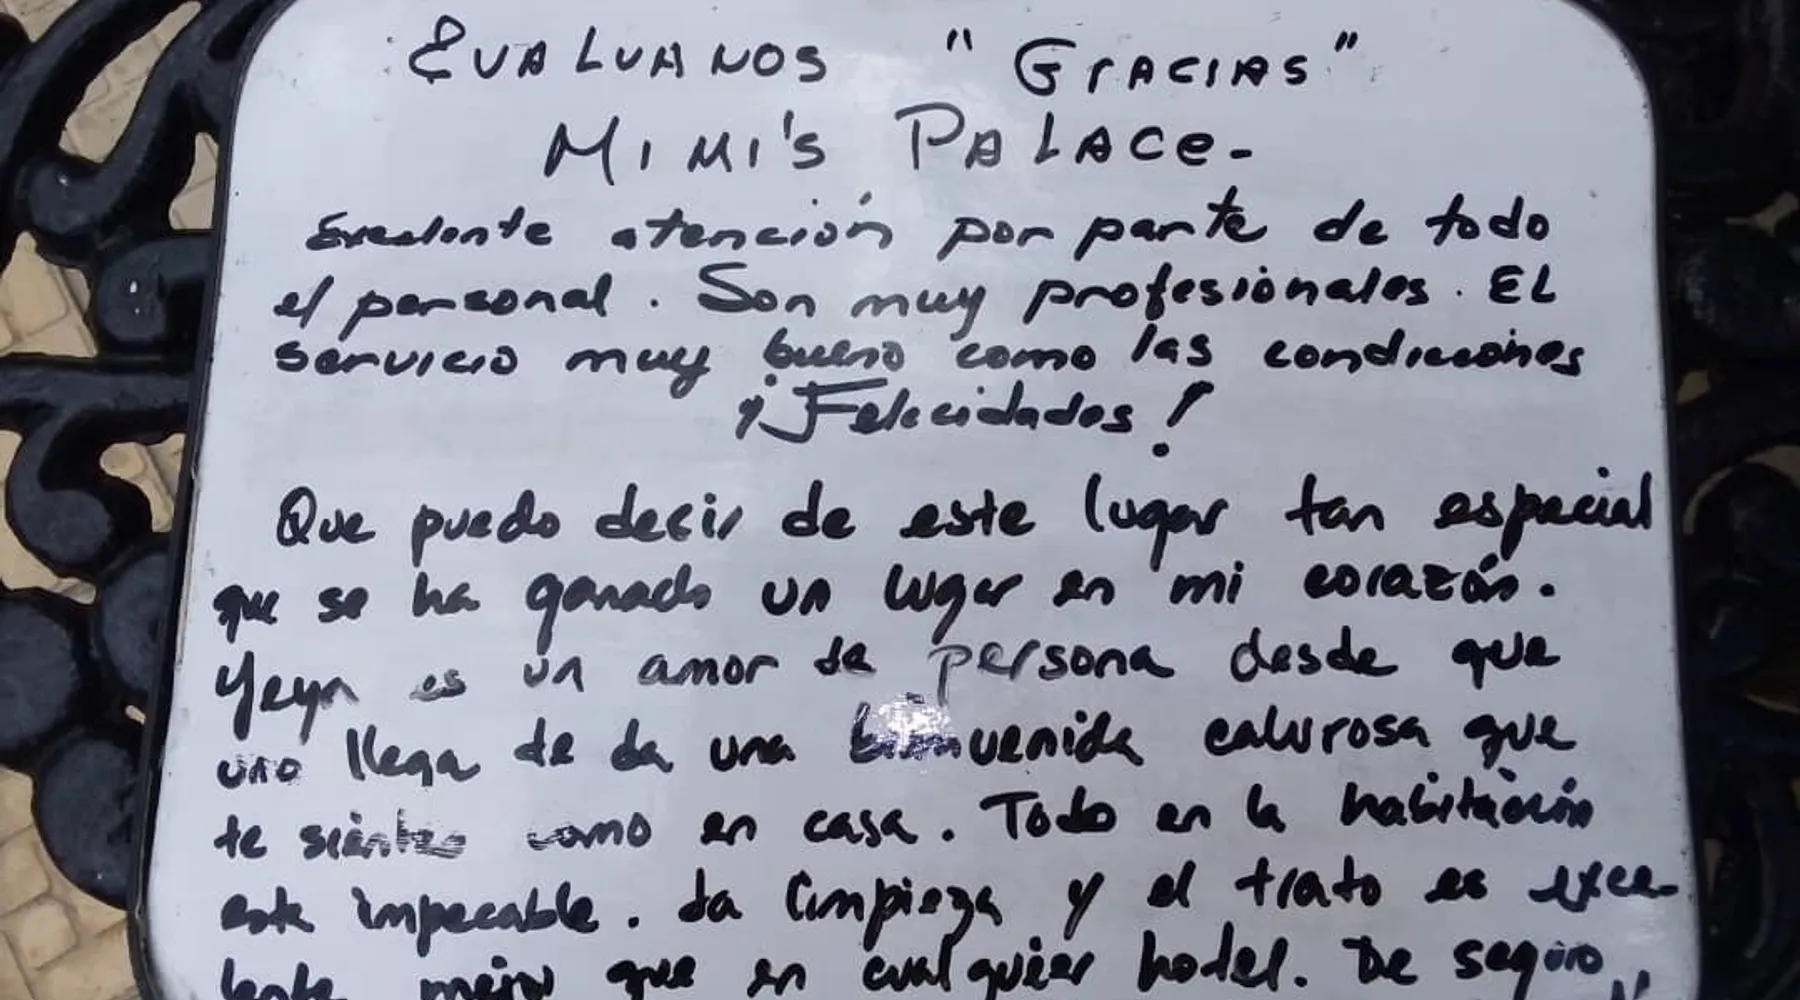 EVALUANOS "GrACIAS"
MIMI'S PALACe-
Excelente atención por parte de todo
el personal. Son muy profesionales. EL
servicio muy bueno como las condiciones
¡Felicidades!
Que puedo decir de este lugar tan especial
que se ha ganado un lugar en mi corazón.
Yeya es un amor de persona desde que
uno llega te da una bienvenida calurosa que
te sientes como en casa. Todo en la habitación
esta impecable. La limpieza y el trato es exce-
lente mejor que en cualquier hotel. De seguro